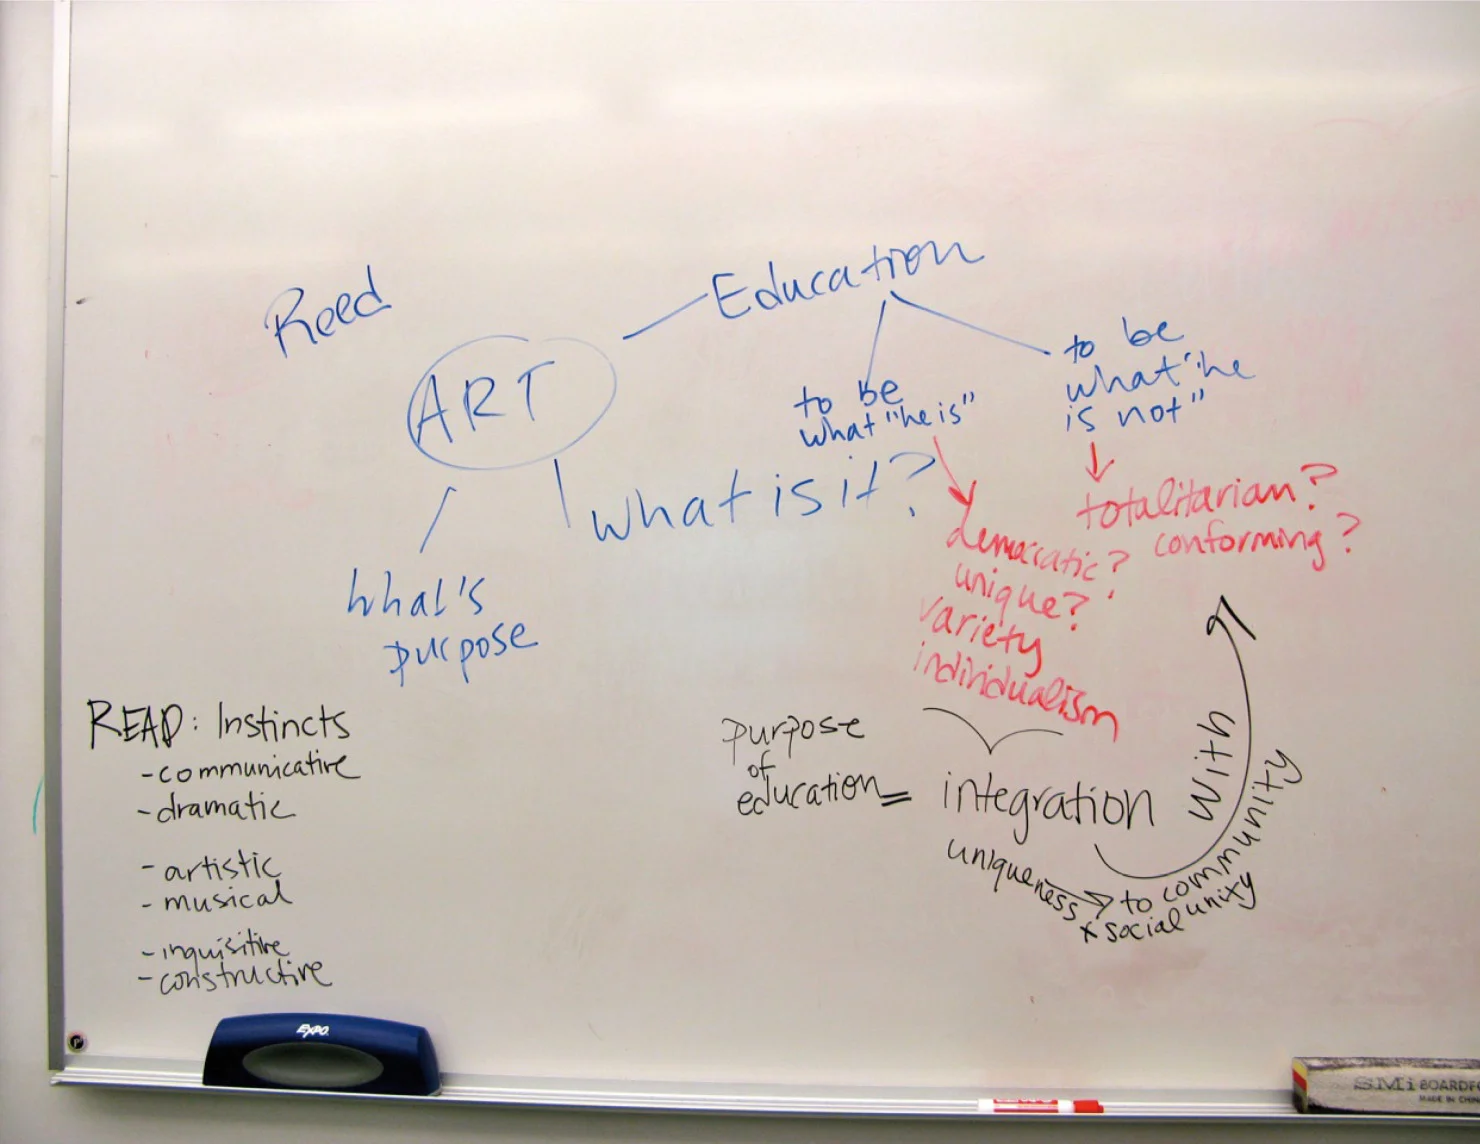 Reed
Education
ART
to be
what "he is"
to be
what "he
is not"
what is it?
what's
purpose
totalitarian?
conforming?
democratic?
unique?
variety
individualism
READ: Instincts
- communicative
- dramatic
- artistic
- musical
- inquisitive
- constructive
purpose
of
education =
integration
with
uniqueness → to community
x social unity
EXPO
SMi BOARDFO
MADE IN CHINA